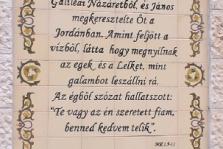 Galileai Názáretből, és János
megkeresztelte Őt a
Jordánban. Amint feljött a
vízből, látta hogy megnyílnak
az egek és a Lelket, mint
galambot leszállni rá.
Az égből szózat hallatszott:
"Te vagy az én szeretett fiam,
benned kedvem telik".